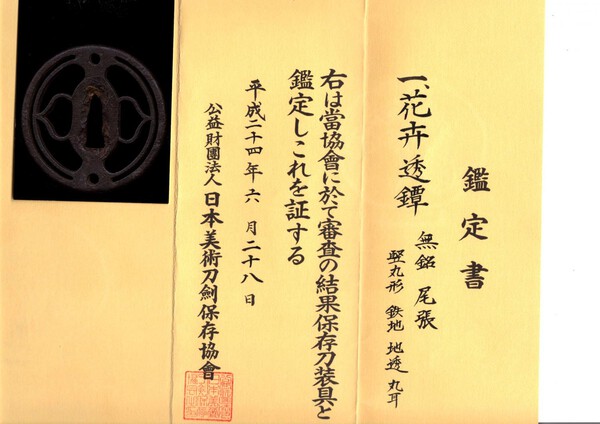 鑑定書
一、花卉透鐔
無銘 尾張
竪丸形 鉄地 地透 丸耳
右は當協會に於て審査の結果保存刀装具と
鑑定しこれを証する
平成二十四年六月二十八日
公益財團法人日本美術刀劍保存協會